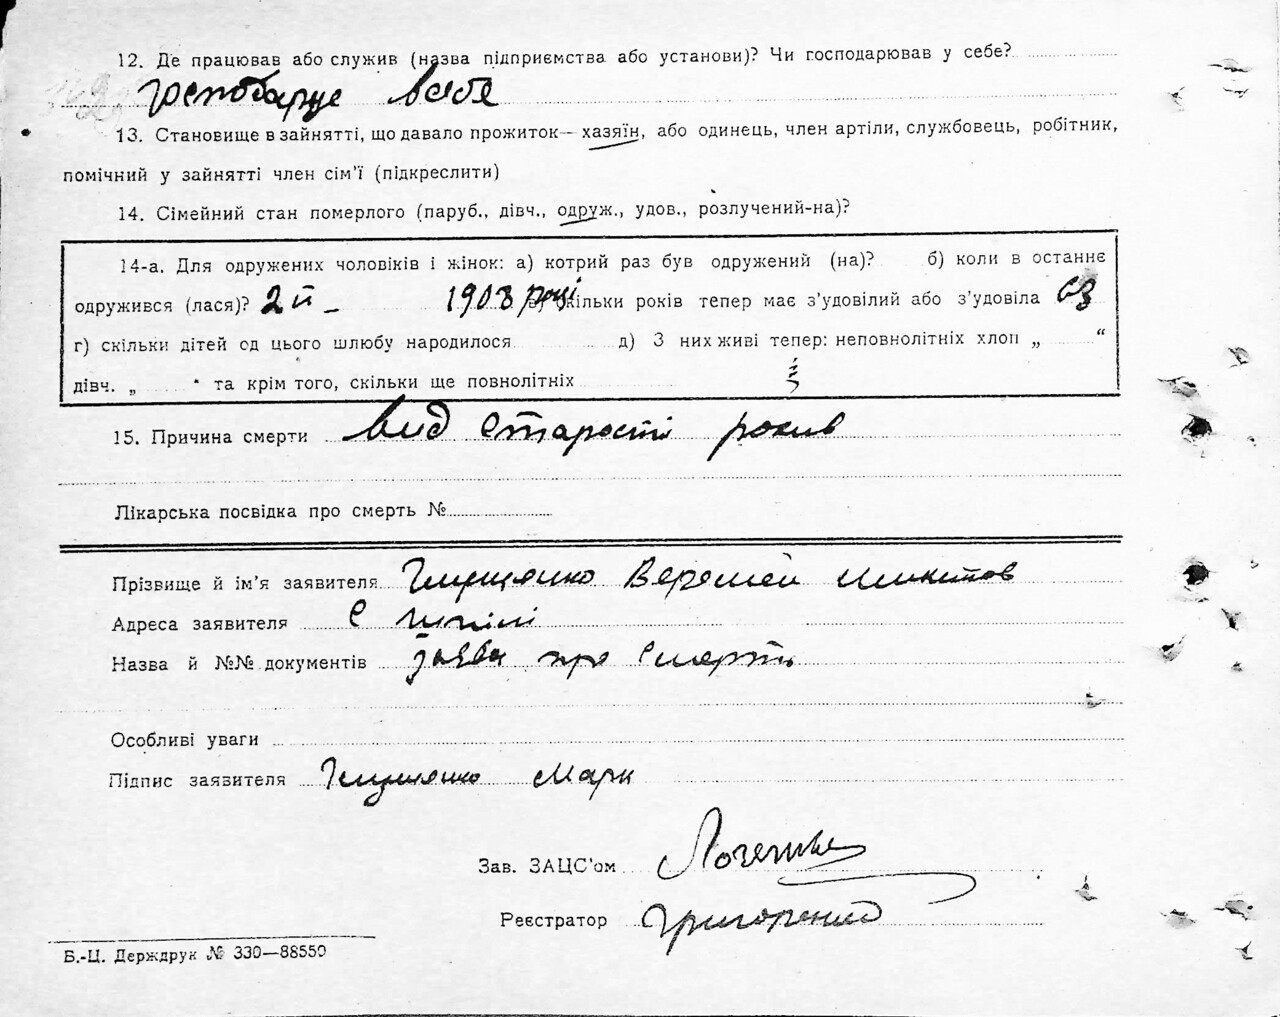 12. Де працював або служив (назва підприємства або установи)? Чи господарював у себе?
всебе
13. Становище в зайнятті, що давало прожиток— хазяїн, або одинець, член артіли, службовець, робітник,
помічний у зайнятті член сім'ї (підкреслити)
14. Сімейний стан померлого (паруб., дівч., одруж., удов., розлучений-на)?
14-а. Для одружених чоловіків і жінок: а) котрий раз був одружений (на)? б) коли в останнє
одружився (лася)? 2й 1908 році скільки років тепер має з'удовілий або з'удовіла 63
г) скільки дітей од цього шлюбу народилося д) З них живі тепер: неповнолітніх хлоп „ “
дівч. „ “ та крім того, скільки ще повнолітніх
15. Причина смерти вид старости рокив
Лікарська посвідка про смерть №
Прізвище й ім'я заявителя
Адреса заявителя с
Назва й №№ документів заява про смерть
Особливі уваги
Підпис заявителя Марк
Зав. ЗАЦС'ом
Реєстратор
Б.-Ц. Держдрук № 330—88550